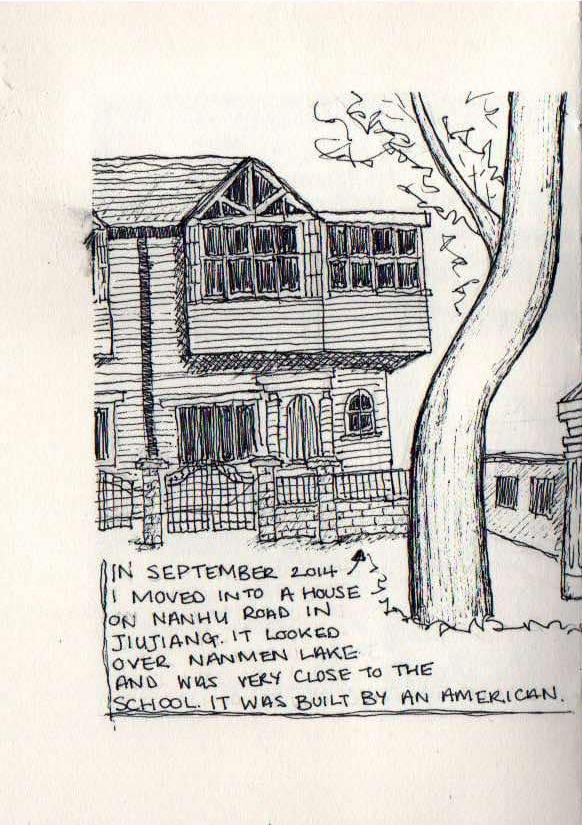 IN SEPTEMBER 2014
I MOVED INTO A HOUSE
ON NANHU ROAD IN
JIUJIANG. IT LOOKED
OVER NANMEN LAKE
AND WAS VERY CLOSE TO THE
SCHOOL. IT WAS BUILT BY AN AMERICAN.